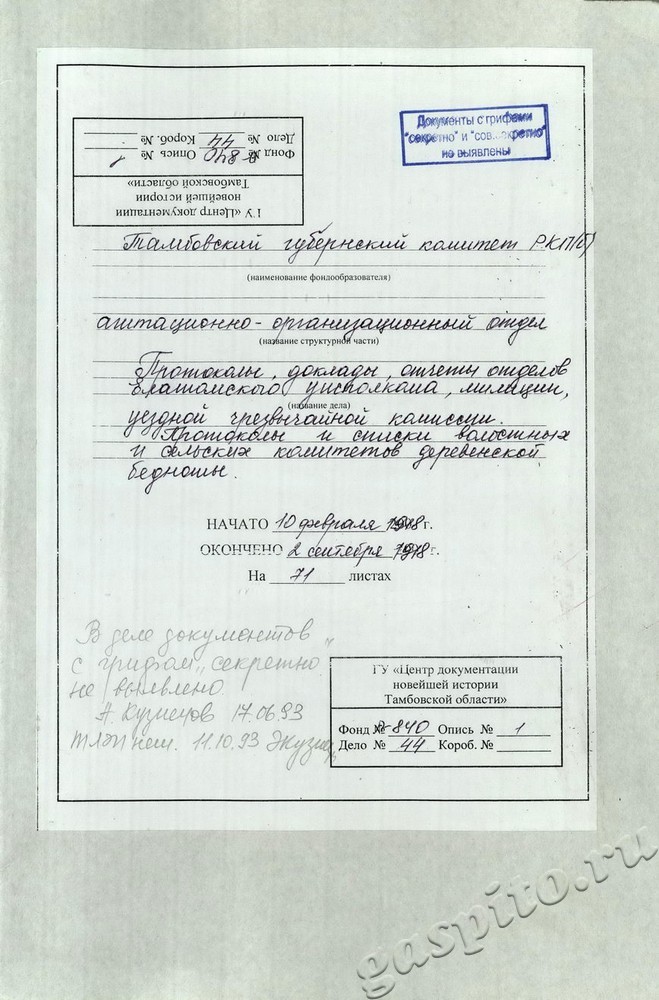 Документы с грифами
"секретно" и "сов.секретно"
не выявлены
ГУ «Центр документации
новейшей истории
Тамбовской области»
Фонд № Р-840 Опись № 1
Дело № 44 Короб. №
Тамбовский губернский комитет РКП(б)
(наименование фондообразователя)
агитационно-организационный отдел
(название структурной части)
Протоколы, доклады, отчеты отделов
Елатомского уисполкома, милиции,
(название дела)
уездной чрезвычайной комиссии.
Протоколы и списки волостных
и сельских комитетов деревенской
бедноты.
НАЧАТО 10 февраля 1918 г.
ОКОНЧЕНО 2 сентября 1918 г.
На 71 листах
В деле документов
с грифом „секретно"
не выявлено
А. Кузнецов 17.06.93
11.10.93
ГУ «Центр документации
новейшей истории
Тамбовской области»
Фонд № Р-840 Опись № 1
Дело № 44 Короб. №
gaspito.ru